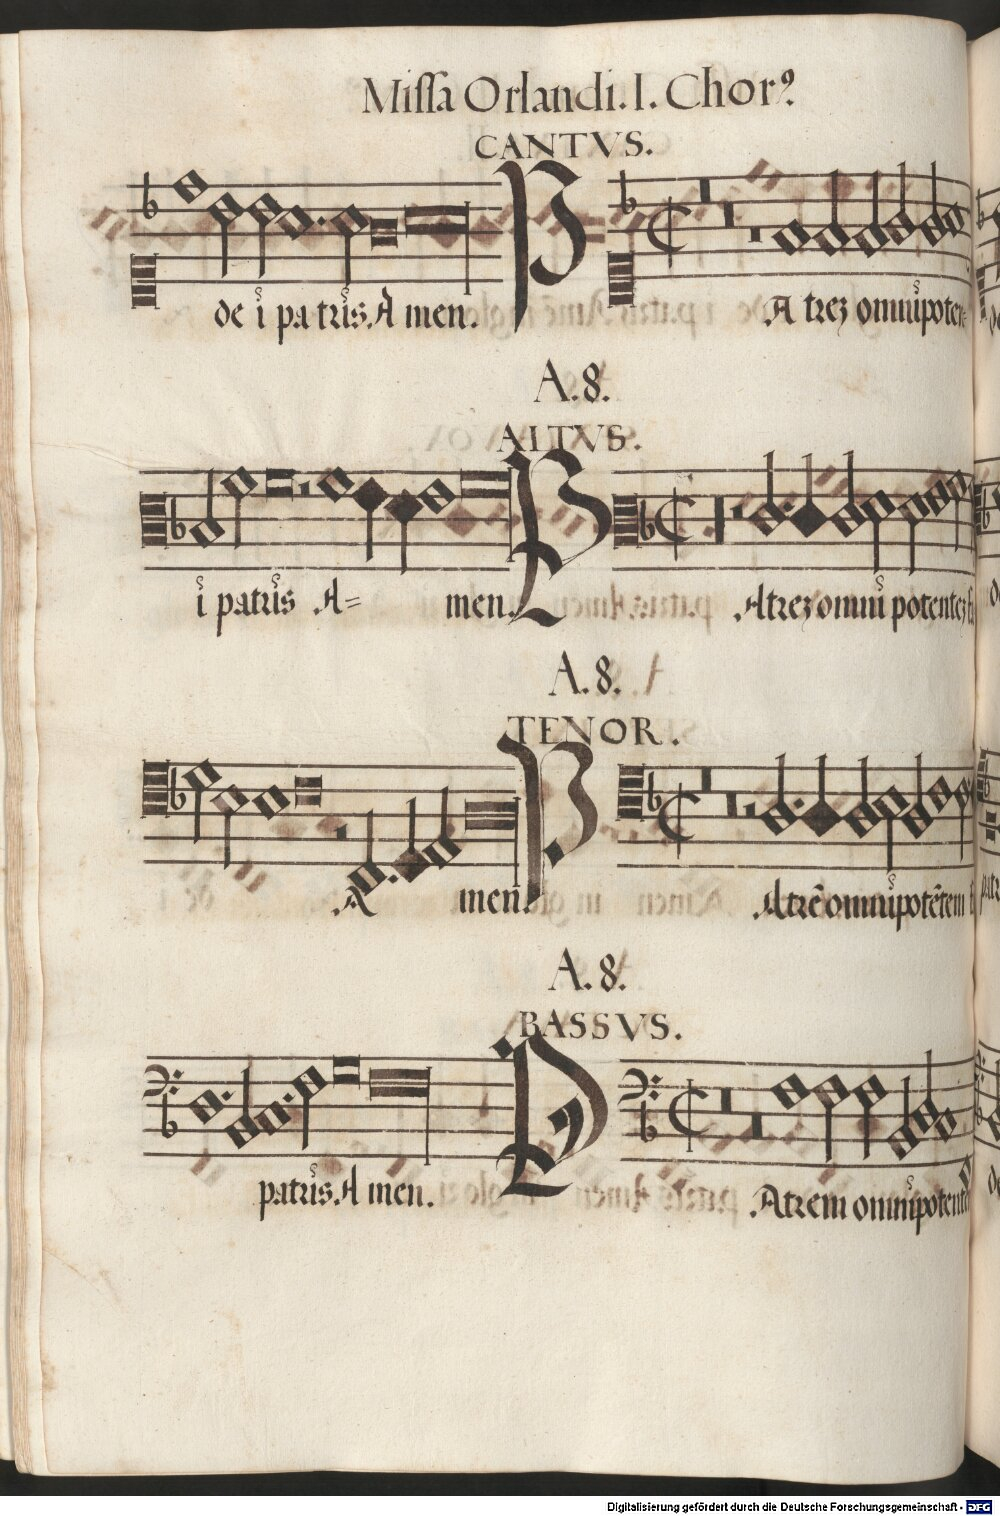 Missa Orlandi. I. Chorꝯ
CANTVS.
de i patris. A men. P A trez omnipoten
A. 8.
ALTVS.
i patris A= men. P Atrez omni potentez
A. 8.
TENOR.
A men. P Atrē omnipotētem
A. 8.
BASSVS.
patris. A men. P Atrem omnipotentē
Digitalisierung gefördert durch die Deutsche Forschungsgemeinschaft - DFG